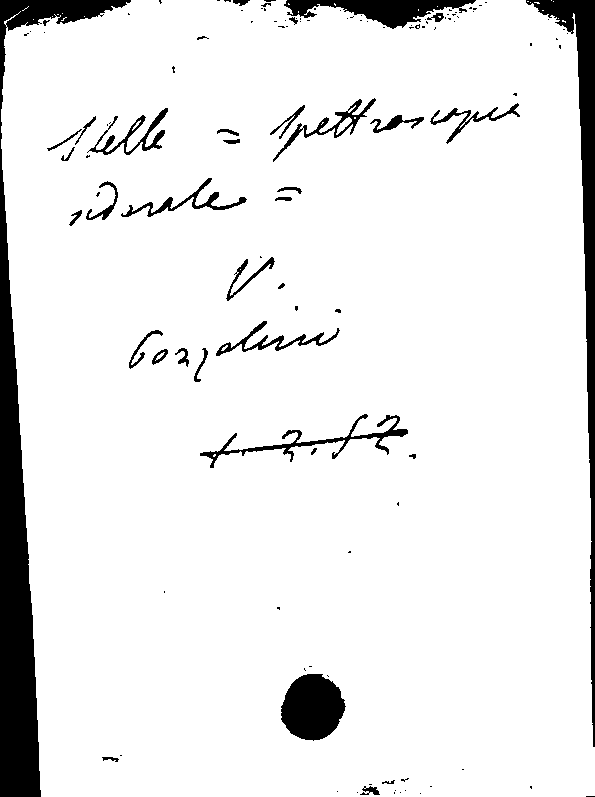 Stelle = Spettroscopia
siderale =
V.
Gozzolini